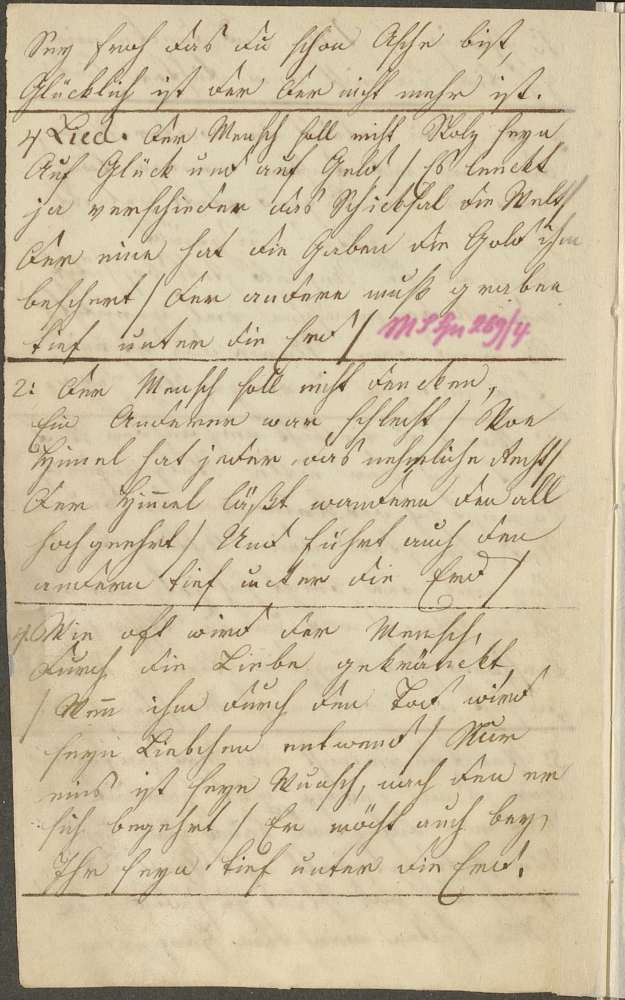 Sey froh das du schon Asche bist,
Glücklich ist der der nicht mehr ist.
4 Lied. Der Mensch soll nicht Stolz seyn
Auf Glück und auf Geld / Es lenckt
ja verschieden das Schicksal die Welt /
Der eine hat die Gaben die Gold ihm
beschert / Der andere muß graben
tief unter die Erd /
2: Der Mensch soll nicht dencken,
Ein Anderer war schlecht / Von
Himel hat jeder das nehmliche Recht /
Der Himel läßt wandern den all
hochgeehrt / Und führt auch den
andern tief unter die Erd /
Wie oft wird der Mensch,
Durch die Liebe gekränckt
/ Wen ihm durch den Tod wird
seyn Liebchen entwend / Nur
eins ist seyn Wunsch, nach den er
sich begehrt / Er möcht auch bey
Ihr seyn tief unter die Erd.